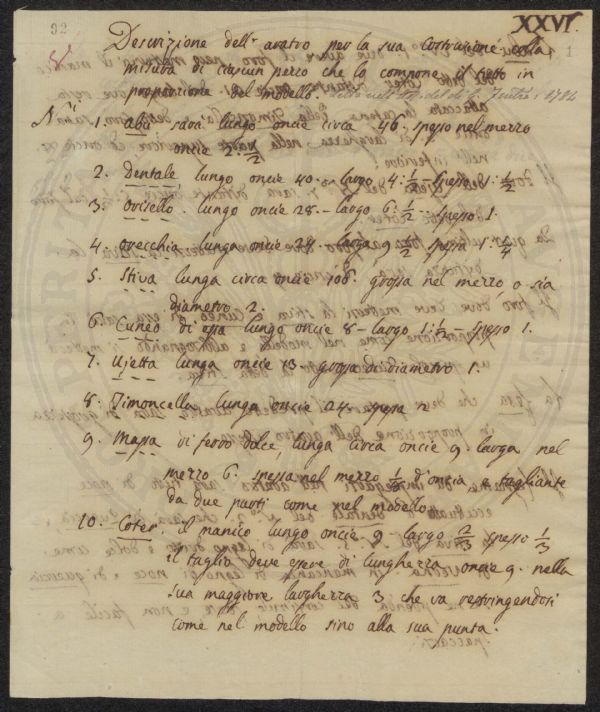 92
XXVI.
1
Descrizione dell' aratro per la sua costruzione colla
misura di ciascun pezzo che lo compone il tutto in
proporzione del modello.
N.ri
1. abu sarà lungo oncie circa 46. spesso nel mezzo
oncie 2. 1/2
2. Dentale, lungo oncie 40 - largo 4. 1/2 - spesso 1. 1/2
3. Orisello. lungo oncie 28. - largo 6. 1/2 - spesso 1.
4. Orecchia lunga oncie 24. larga 9 1/2 spessa 1.
5. Stiva lunga circa oncie 108. grossa nel mezzo, o sia
diametro 2.
6. Cuneo di essa lungo oncie 8 - largo 1. 1/2 - spesso 1.
7. Ujetta lunga oncie 13 - grossa di diametro 1.
8. Timoncella lunga oncie 24. spessa 2
9. Massa di ferro dolce, lunga circa oncie 9. larga nel
mezzo 6. spessa nel mezzo 1/3 d'oncia e tagliante
da due parti come nel modello
10. Coter. il manico lungo oncie 9 largo 2/3 spesso 1/3
il taglio deve essere di lunghezza oncie 9. nella
sua maggiore larghezza 3 che va restringendosi
come nel modello sino alla sua punta.